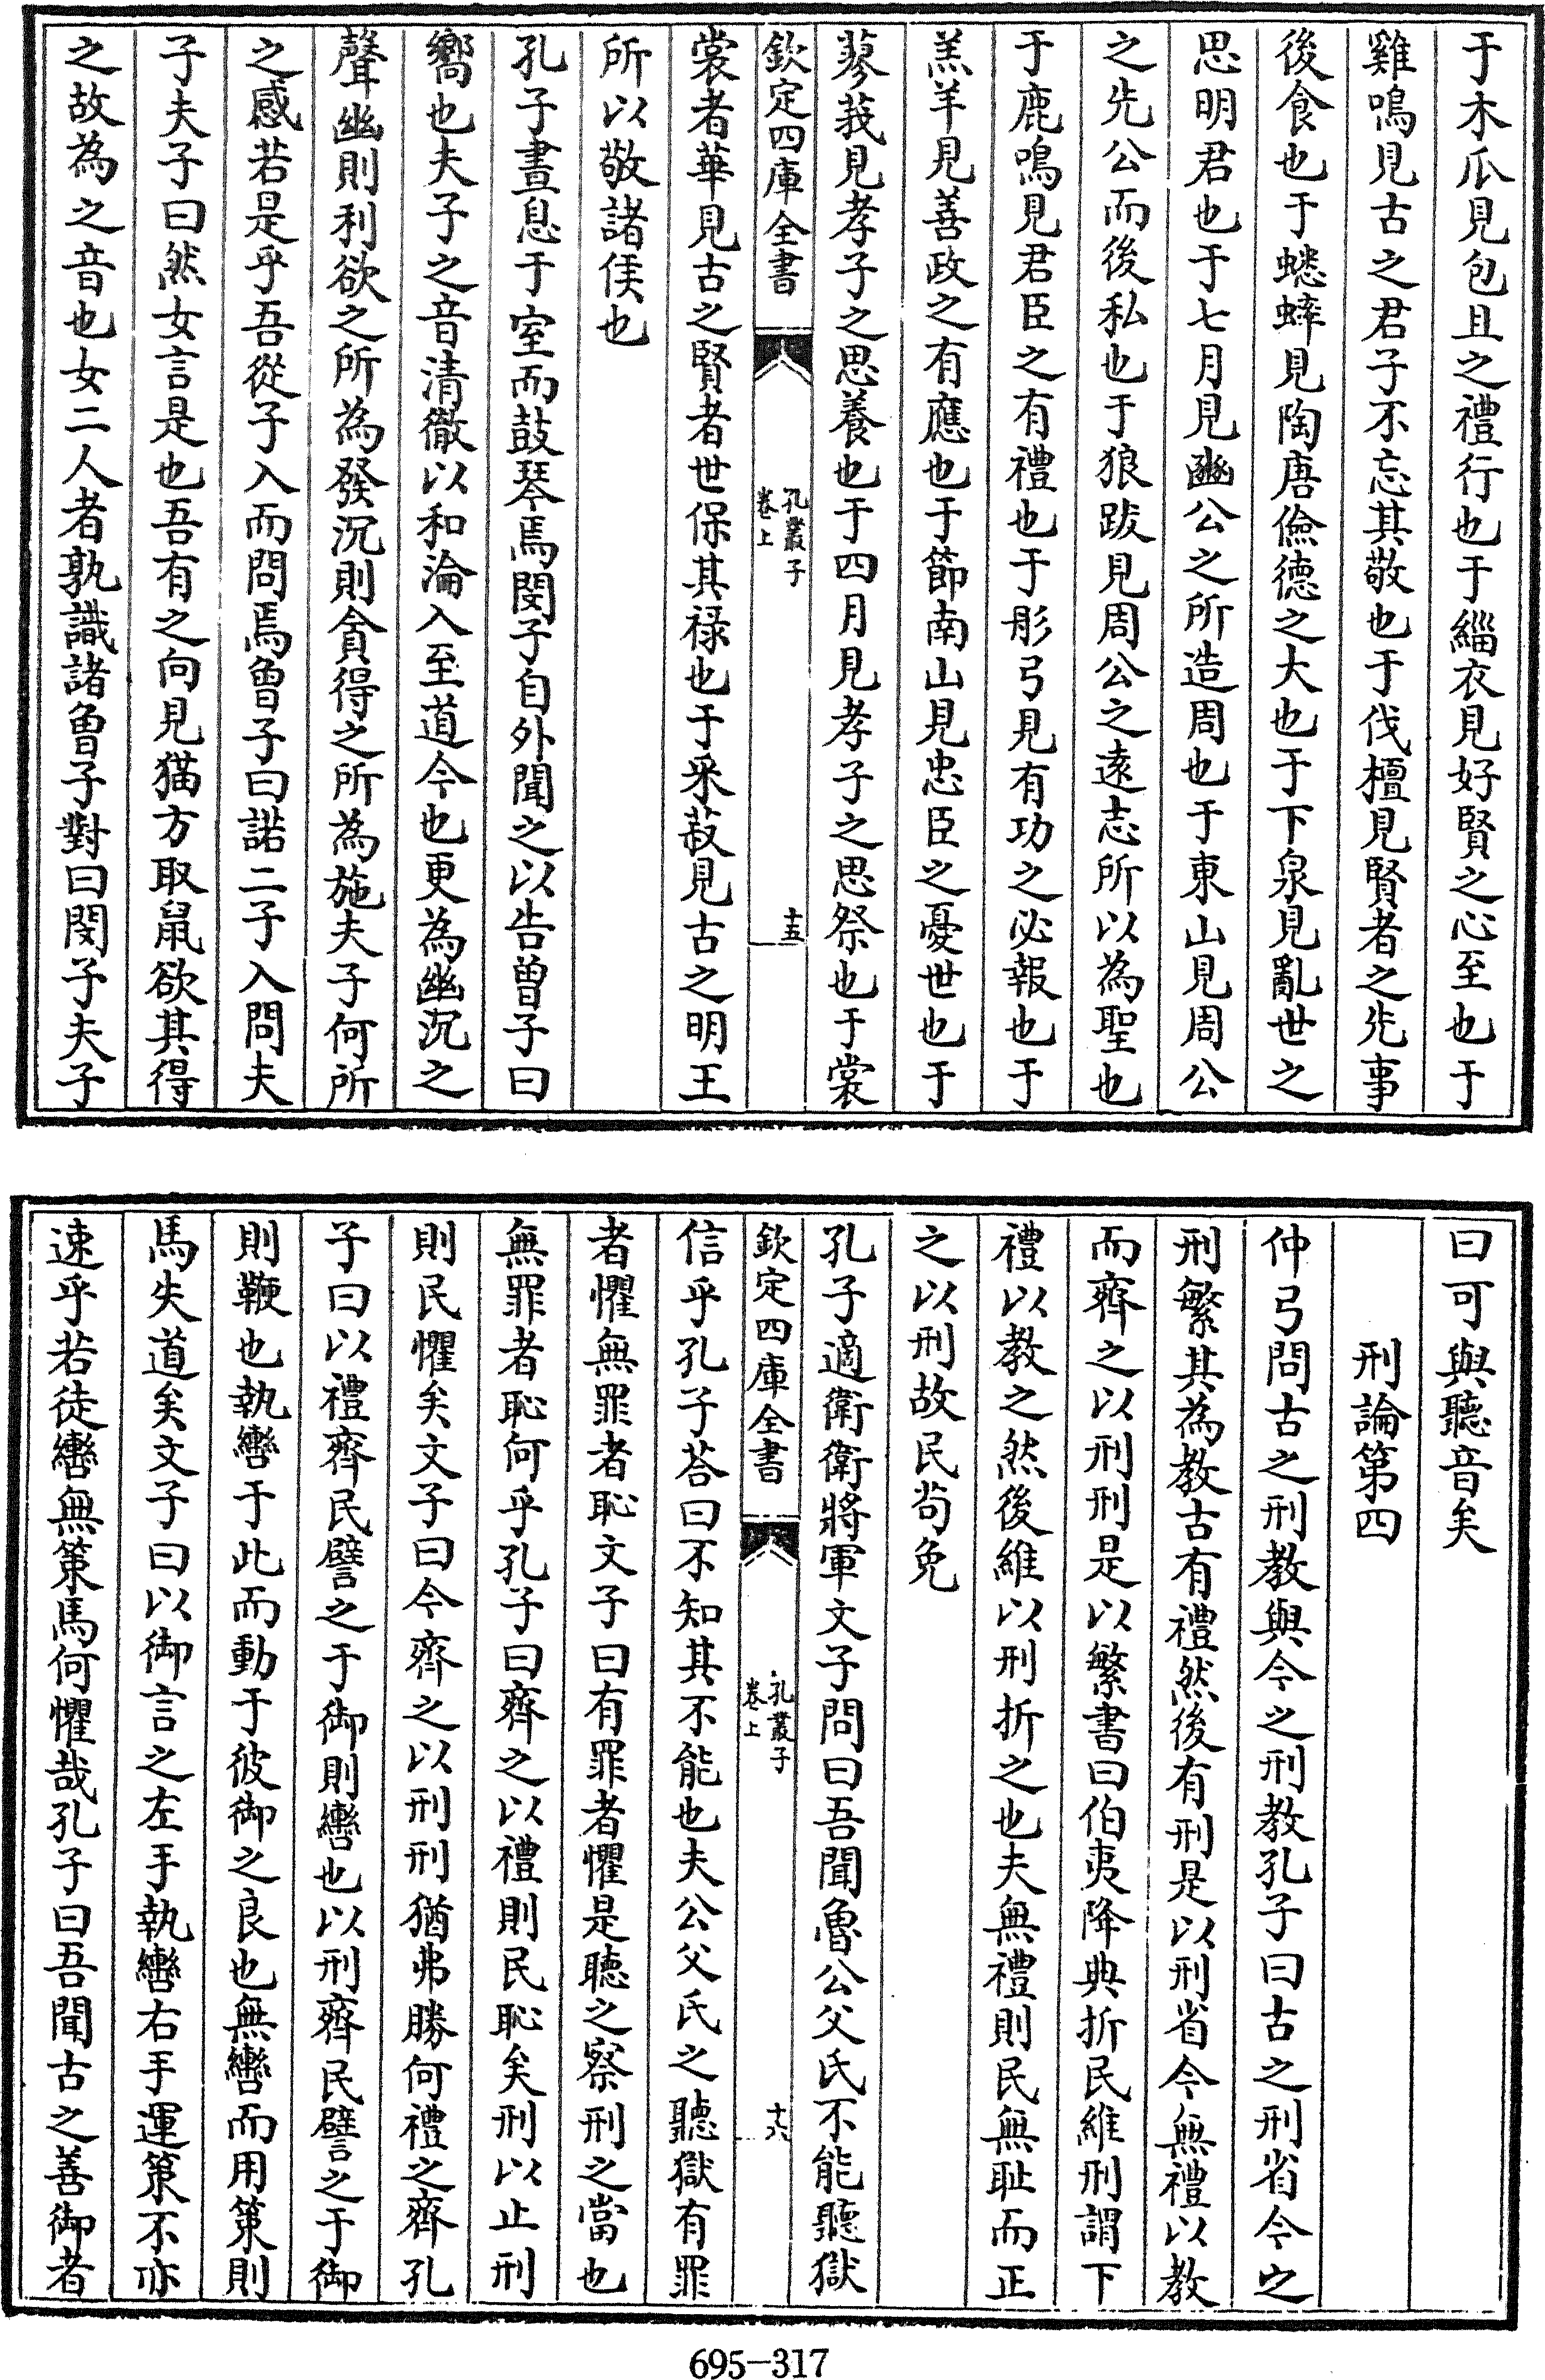 于木瓜見包且之禮行也于緇衣見好賢之心至也于
雞鳴見古之君子不忘其敬也于伐檀見賢者之先事
後食也于蟋蟀見陶唐儉德之大也于下泉見亂世之
思明君也于七月見豳公之所造周也于東山見周公
之先公而後私也于狼跋見周公之遠志所以為聖也
于鹿鳴見君臣之有禮也于彤弓見有功之必報也于
羔羊見善政之有應也于節南山見忠臣之憂世也于
蓼莪見孝子之思養也于四月見孝子之思祭也于裳
欽定四庫全書
孔叢子
卷上
十五
裳者華見古之賢者世保其祿也于采菽見古之明王
所以敬諸侯也
孔子晝息于室而鼓琴焉閔子自外聞之以告曾子曰
嚮也夫子之音清徹以和淪入至道今也更為幽沉之
聲幽則利欲之所為發沉則貪得之所為施夫子何所
之感若是乎吾從子入而問焉曾子曰諾二子入問夫
子夫子曰然女言是也吾有之向見猫方取鼠欲其得
之故為之音也女二人者孰識諸曾子對曰閔子夫子
曰可與聽音矣
刑論第四
仲弓問古之刑教與今之刑教孔子曰古之刑省今之
刑繁其為教古有禮然後有刑是以刑省今無禮以教
而齊之以刑刑是以繁書曰伯夷降典折民維刑謂下
禮以教之然後維以刑折之也夫無禮則民無恥而正
之以刑故民苟免
孔子適衛衛將軍文子問曰吾聞魯公父氏不能聽獄
欽定四庫全書
孔叢子
卷上
十六
信乎孔子荅曰不知其不能也夫公父氏之聽獄有罪
者懼無罪者恥文子曰有罪者懼是聽之察刑之當也
無罪者恥何乎孔子曰齊之以禮則民恥矣刑以止刑
則民懼矣文子曰今齊之以刑刑猶弗勝何禮之齊孔
子曰以禮齊民譬之于御則轡也以刑齊民譬之于御
則鞭也執轡于此而動于彼御之良也無轡而用策則
馬失道矣文子曰以御言之左手執轡右手運策不亦
速乎若徒轡無策馬何懼哉孔子曰吾聞古之善御者
695-317